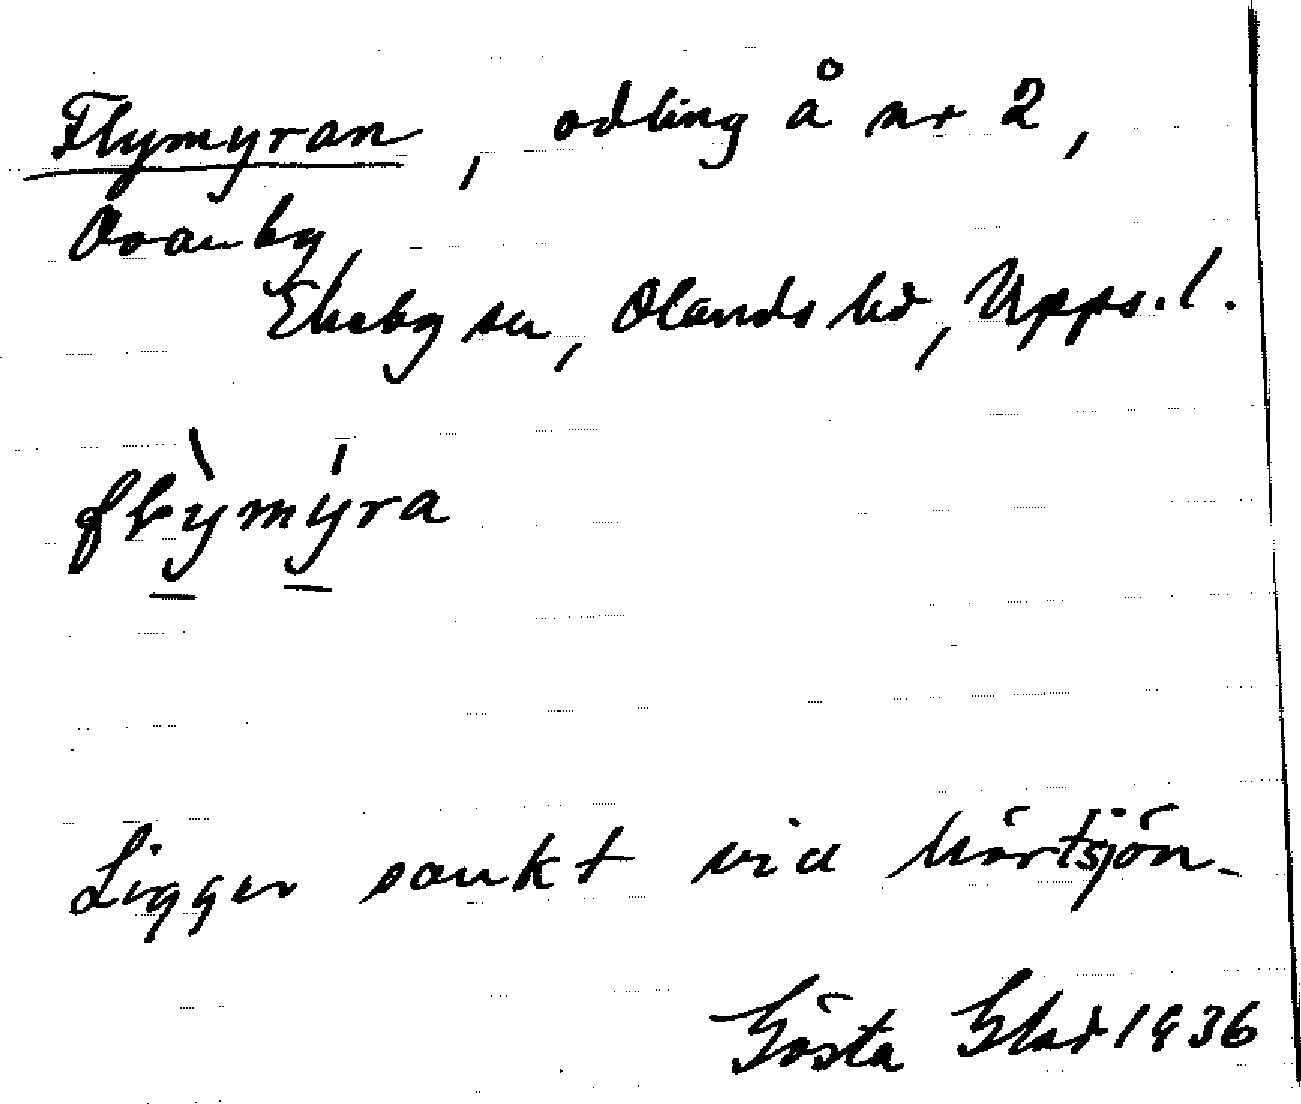 Flymyran, odling å nr 2,
Ovanby
Ekeby sn, Olands hd, Upps.l.
flỳmýra
Ligger sankt vid hörtsjön.
Gösta Glad 1936